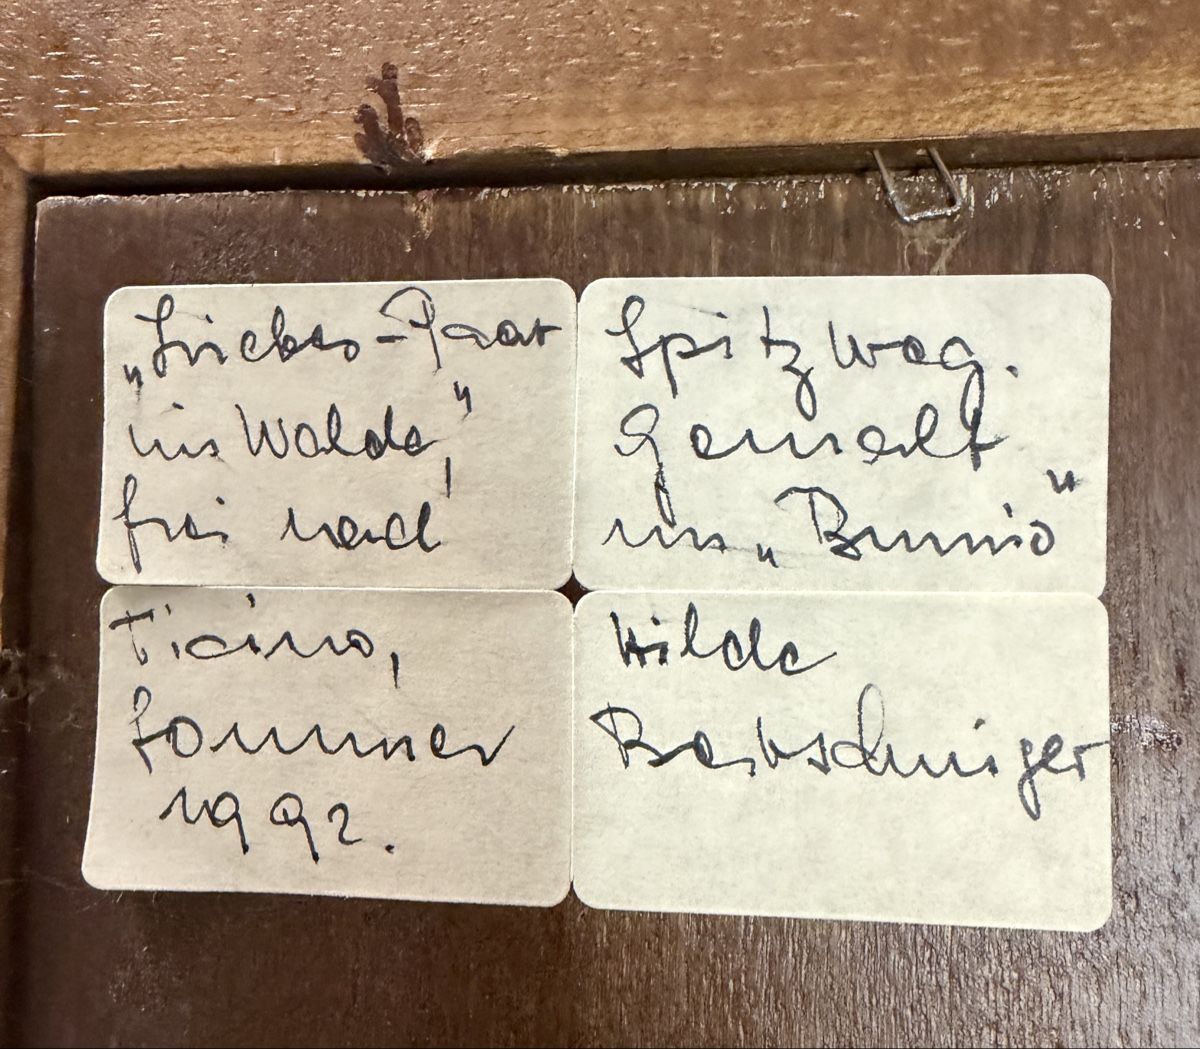 „Liebes-Paar
im Walde,"
frei nach
Spitzweg.
Gemalt
im „Brunio"
Ticino,
Sommer
1992.
Hilde